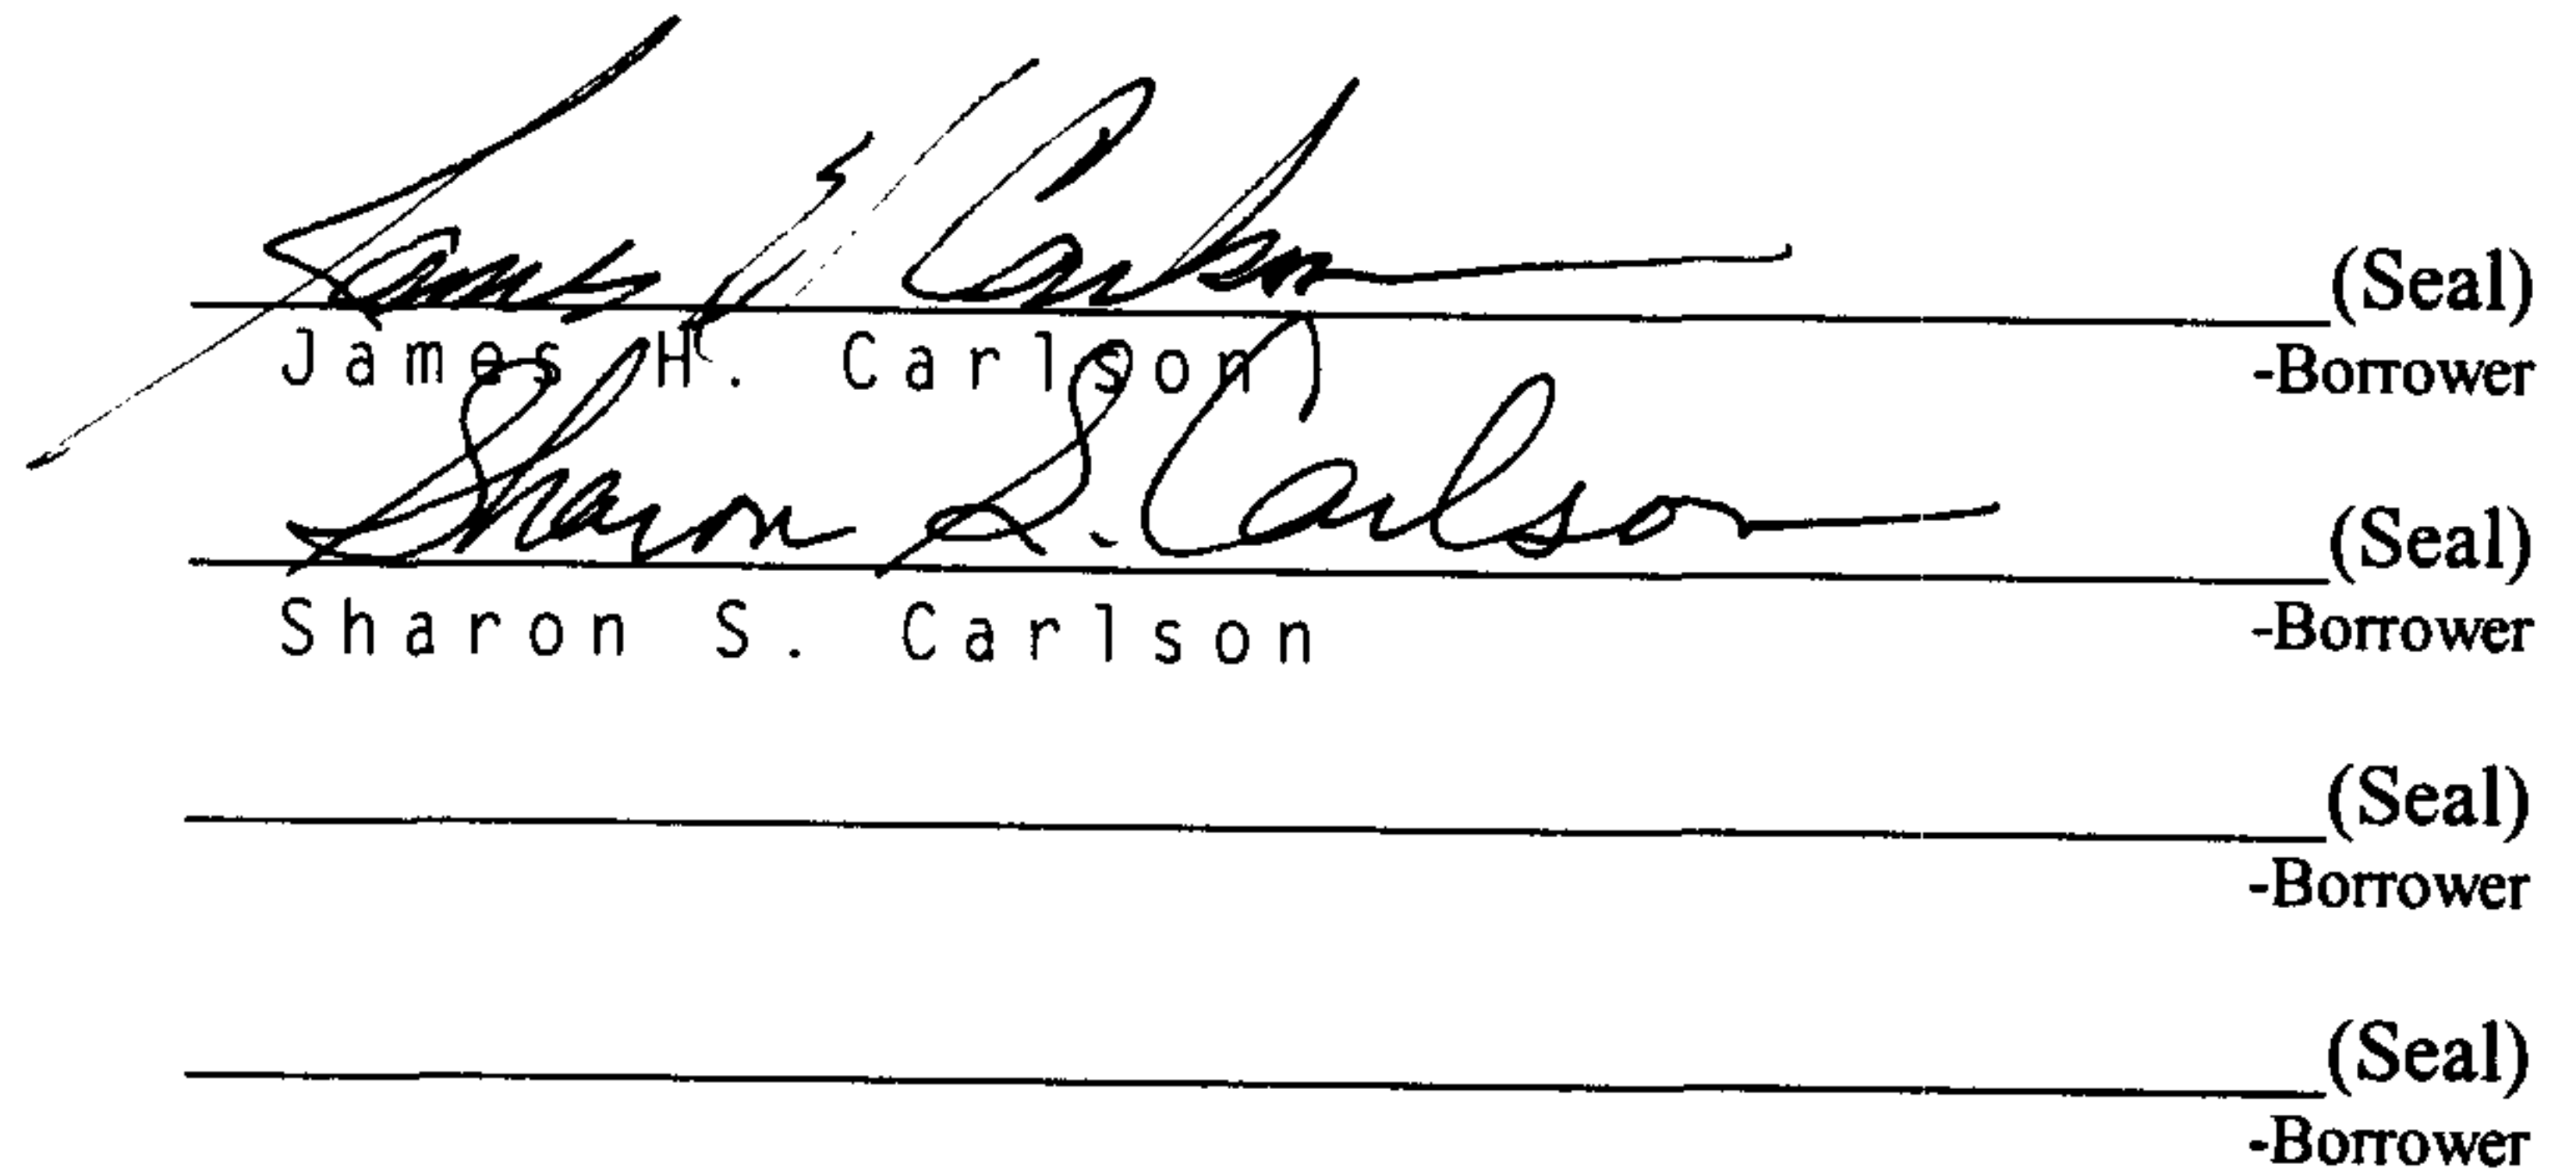 James H Carlson (Seal)
James H. Carlson -Borrower
Sharon S. Carlson (Seal)
Sharon S. Carlson -Borrower
(Seal)
-Borrower
(Seal)
-Borrower